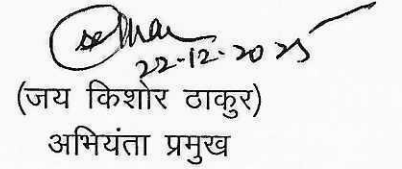 22-12-2025
(जय किशोर ठाकुर)
अभियंता प्रमुख